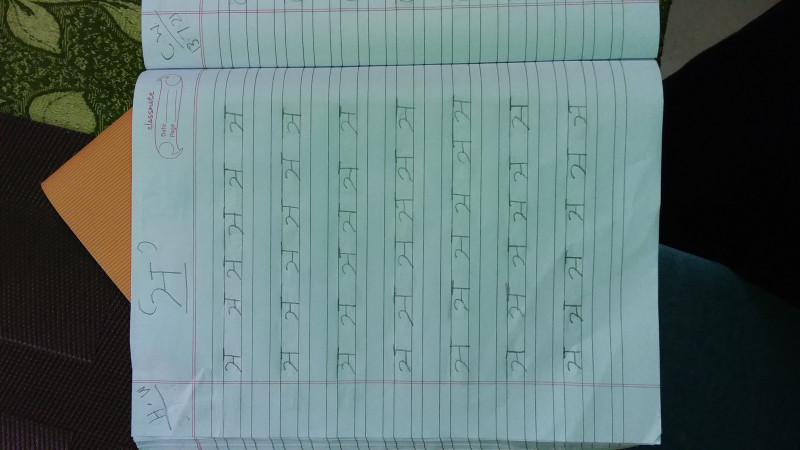 C.W
classmate
Date
Page
H.W
(अ)
अ अ अ अ अ अ
अ अ अ अ अ अ
अ अ अ अ अ अ
अ अ अ अ अ अ
अ अ अ अ अ अ
अ अ अ अ अ अ
अ अ अ अ अ अ